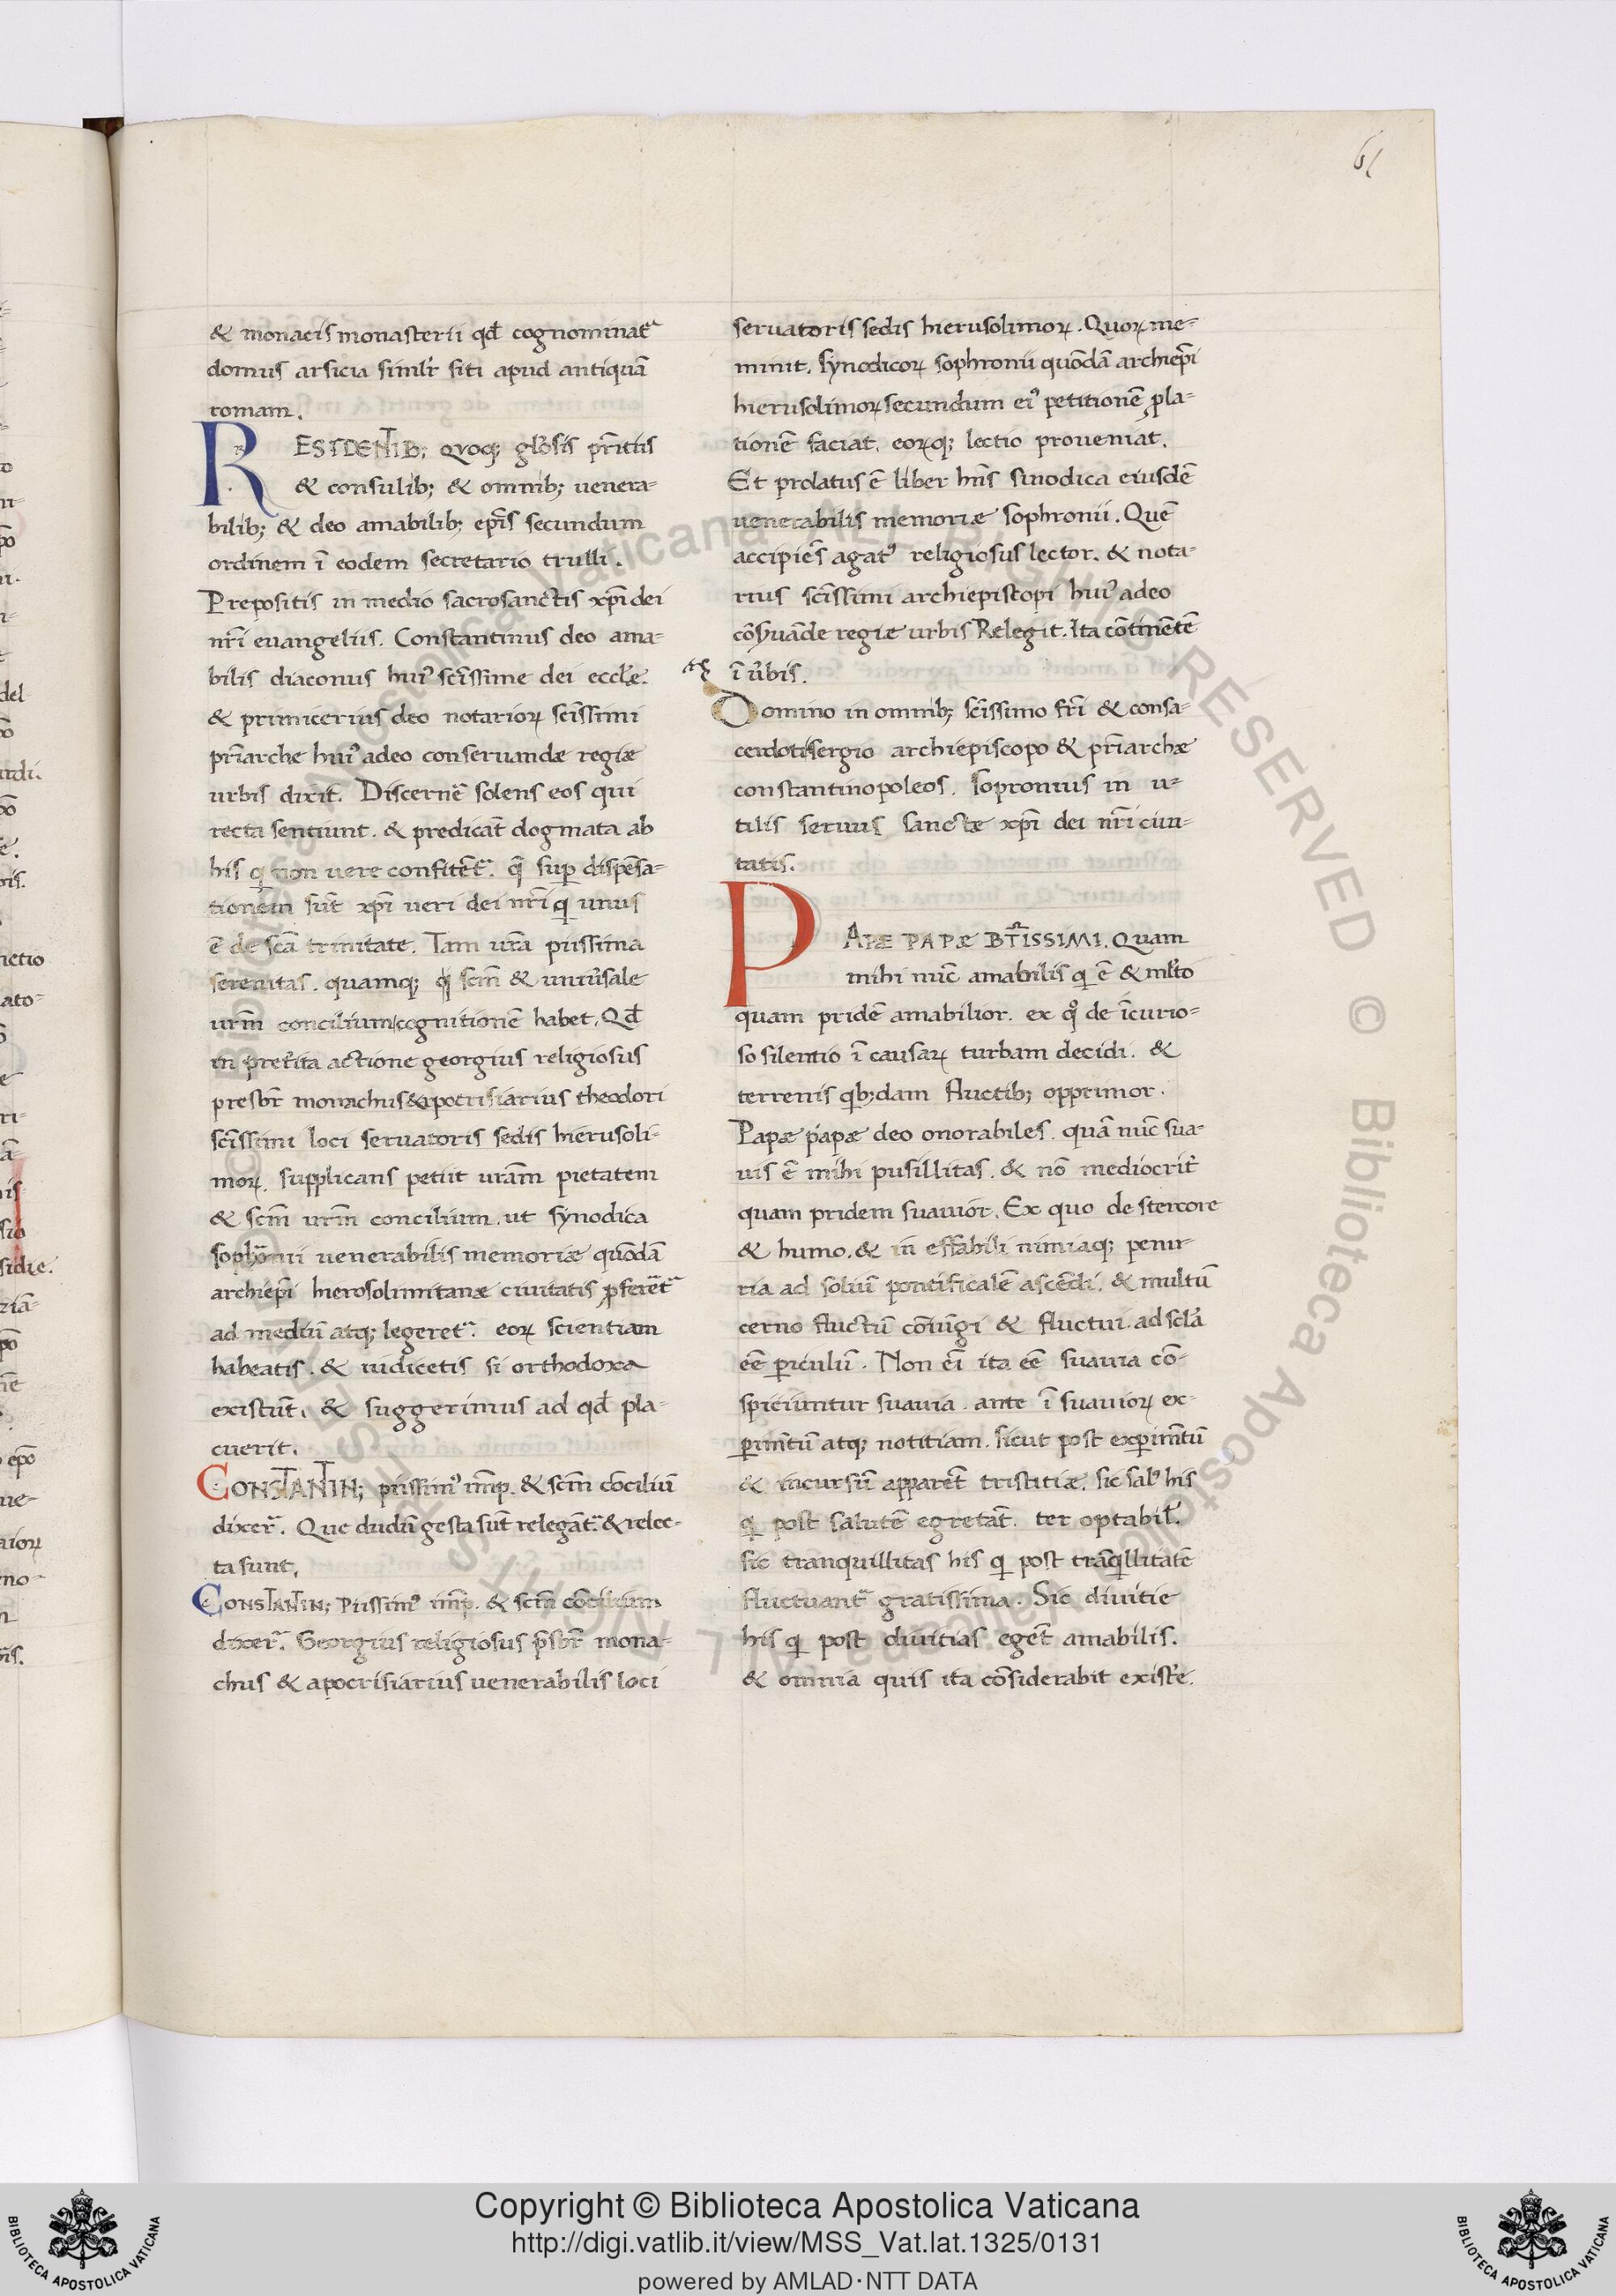 61
& monacis monasterii qđ cognominat᷑
domus arsicia simlr̃ siti apud antiquã
romam.
RESIDENTIB; QVOQ; glosis pr̃itiis
& consulib; & omnib; uenera-
bilib; & deo amabilib; ep̃is secundum
ordinem ĩ eodem secretario trulli.
Prepositis in medio sacrosanctis xp̃i dei
nr̃i euangeliis. Constantinus deo ama-
bilis diaconus huiꝰ scĩssime dei eccl̃e.
& primicerius deo notarioꝝ scĩssimi
pr̃iarche huiꝰ adeo conseruandæ regiæ
urbis dixit. Discernẽ solens eos qui
recta sentiunt. & predicãt dogmata ab
his q non uere confitẽt᷑. q̃ suꝑ dispẽsa-
tionem sũt xp̃i ueri dei nr̃i q unus
ẽ de scã trinitate. Tam ur̃a piissima
serenitas. quamq; scm̃ & uniũsale
urm̃ concilium cognitionẽ habet. Qđ
in pret̃ita actione georgius religiosus
presbr̃ monachus & apocrisiarius theodori
scĩssimi loci seruatoris sedis hierusoli-
moꝝ. supplicans petiit urãm pietatem
& scm̃ urm̃ concilium. ut synodica
sophronii uenerabilis memoriæ quõdã
archiep̃i hierosolimitanæ ciuitatis ꝓferẽt᷑
ad mediũ atq; legeret᷑. eoꝝ scientiam
habeatis. & iudicetis si orthodoxa
existũt. & suggerimus ad qđ pla-
cuerit.
CONSTANTIN; piissimꝰ im̃p. & scm̃ cõciliũ
dixer᷑. Que dudũ gesta sũt relegãt᷑. & relec-
ta sunt.
CONSTANTIN; Piissimꝰ im̃p. & scm̃ cõcilium
dixer᷑. Georgius religiosus p̃sbr̃ mona-
chus & apocrisiarius uenerabilis loci
seruatoris sedis hierusolimoꝝ. Quoꝝ me-
minit. synodicoꝝ sophronii quõdã archiep̃i
hierusolimoꝝ secundum eiꝰ petitionẽ ꝓla-
tionẽ faciat. eoꝝq; lectio proueniat.
Et prolatus ẽ liber hñs sinodica eiusdẽ
uenerabilis memoriæ sophronii. Quẽ
accipiẽs agatꝰ religiosus lector. & nota-
rius scĩssimi archiepiscopi huiꝰ adeo
cõsẽuãde regiæ urbis Relegit. Ita cõtinẽte
ĩ ũbis.
Domino in omnib; scĩssimo fr̃i & consa-
cerdoti sergio archiepiscopo & pr̃iarchæ
constantinopoleos. sopronius in u-
tilis seruus sanctæ xp̃i dei nr̃i ciui-
tatis.
PAPÆ PAPÆ BTĨSSIMI. Quam
mihi nũc amabilis q ẽ & ml̃to
quam pridẽ amabilior. ex qͦ de ĩcurio-
so silentio ĩ causaꝝ turbam decidi. &
terrenis qb;dam fluctib; opprimor.
Papæ papæ deo onorabiles. quã nũc sua-
uis ẽ mihi pusillitas. & nõ mediocrit̃
quam pridem suauior. Ex quo de stercore
& humo. & in effabili nimiaq; penu-
ria ad soliũ pontificalẽ ascẽdi. & multũ
cerno fluctũ cõiũgi & fluctui. ad scl̃a
eẽ ꝑiculũ. Non eĩ ita eẽ suauia cõ-
spiciuntur suauia. ante ĩ suauioꝝ ex-
ꝑimẽtũ atq; notitiam. sicut post exꝑimẽtũ
& incursũ apparẽt tristitiæ. sic salꝰ his
q post salutẽ egretãt. ter optabil̃.
sic tranquillitas his q post trãqllitatẽ
fluctuant᷑ gratissima. Sic diuitie
his q post diuitias egẽt amabilis.
& omnia quis ita cõsiderabit existẽ.
Copyright © Biblioteca Apostolica Vaticana
http://digi.vatlib.it/view/MSS_Vat.lat.1325/0131
powered by AMLAD·NTT DATA